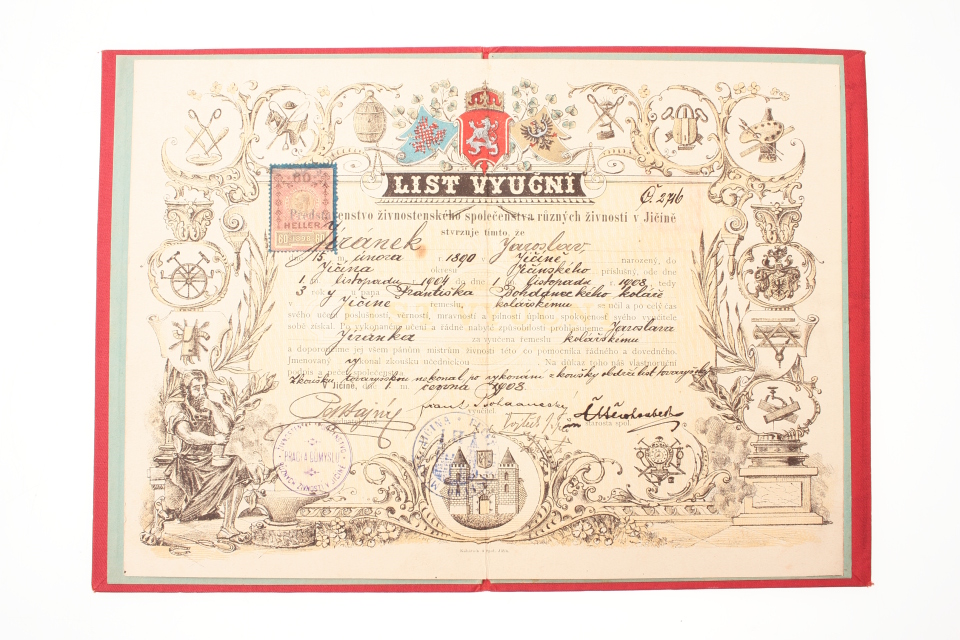 LIST VYUČNÍ
Č. 2746
60
HELLER
60 1898 60
Představenstvo živnostenského společenstva různých živností v Jičíně
stvrzuje tímto, že
Jiránek Jaroslav
15. m. února r. 1890 v Jičíně narozený, do
Jičína okresu Jičínského příslušný, ode dne
1. m. listopadu 1904 do dne 1. listopadu r. 1903, tedy
3 roky u pana Františka Bohdaneckého koláře
v Jičíně řemeslu kolářskému se učil a po celý čas
svého učení poslušností, věrností, mravností a pilností úplnou spokojenost svého vyučitele
sobě získal. Po vykonaném učení, a řádně nabyté způsobilosti prohlašujeme Jaroslava
Jiránka za vyučena řemeslu kolářskému
a doporoučíme jej všem pánům mistrům živnosti této co pomocníka řádného a dovedného.
Jmenovaný vykonal zkoušku učednickou. Na důkaz toho náš vlastnoruční
podpis a pečeť společenstva.
Zkoušku tovaryšskou nekonal, po vykonání zkoušky obdrží list tovaryšský
V Jičíně, dne 1. m. června 1908.
Frant. Bohdanecký
vyučitel.
starosta spol.
PRÁCI A PRŮMYSLU